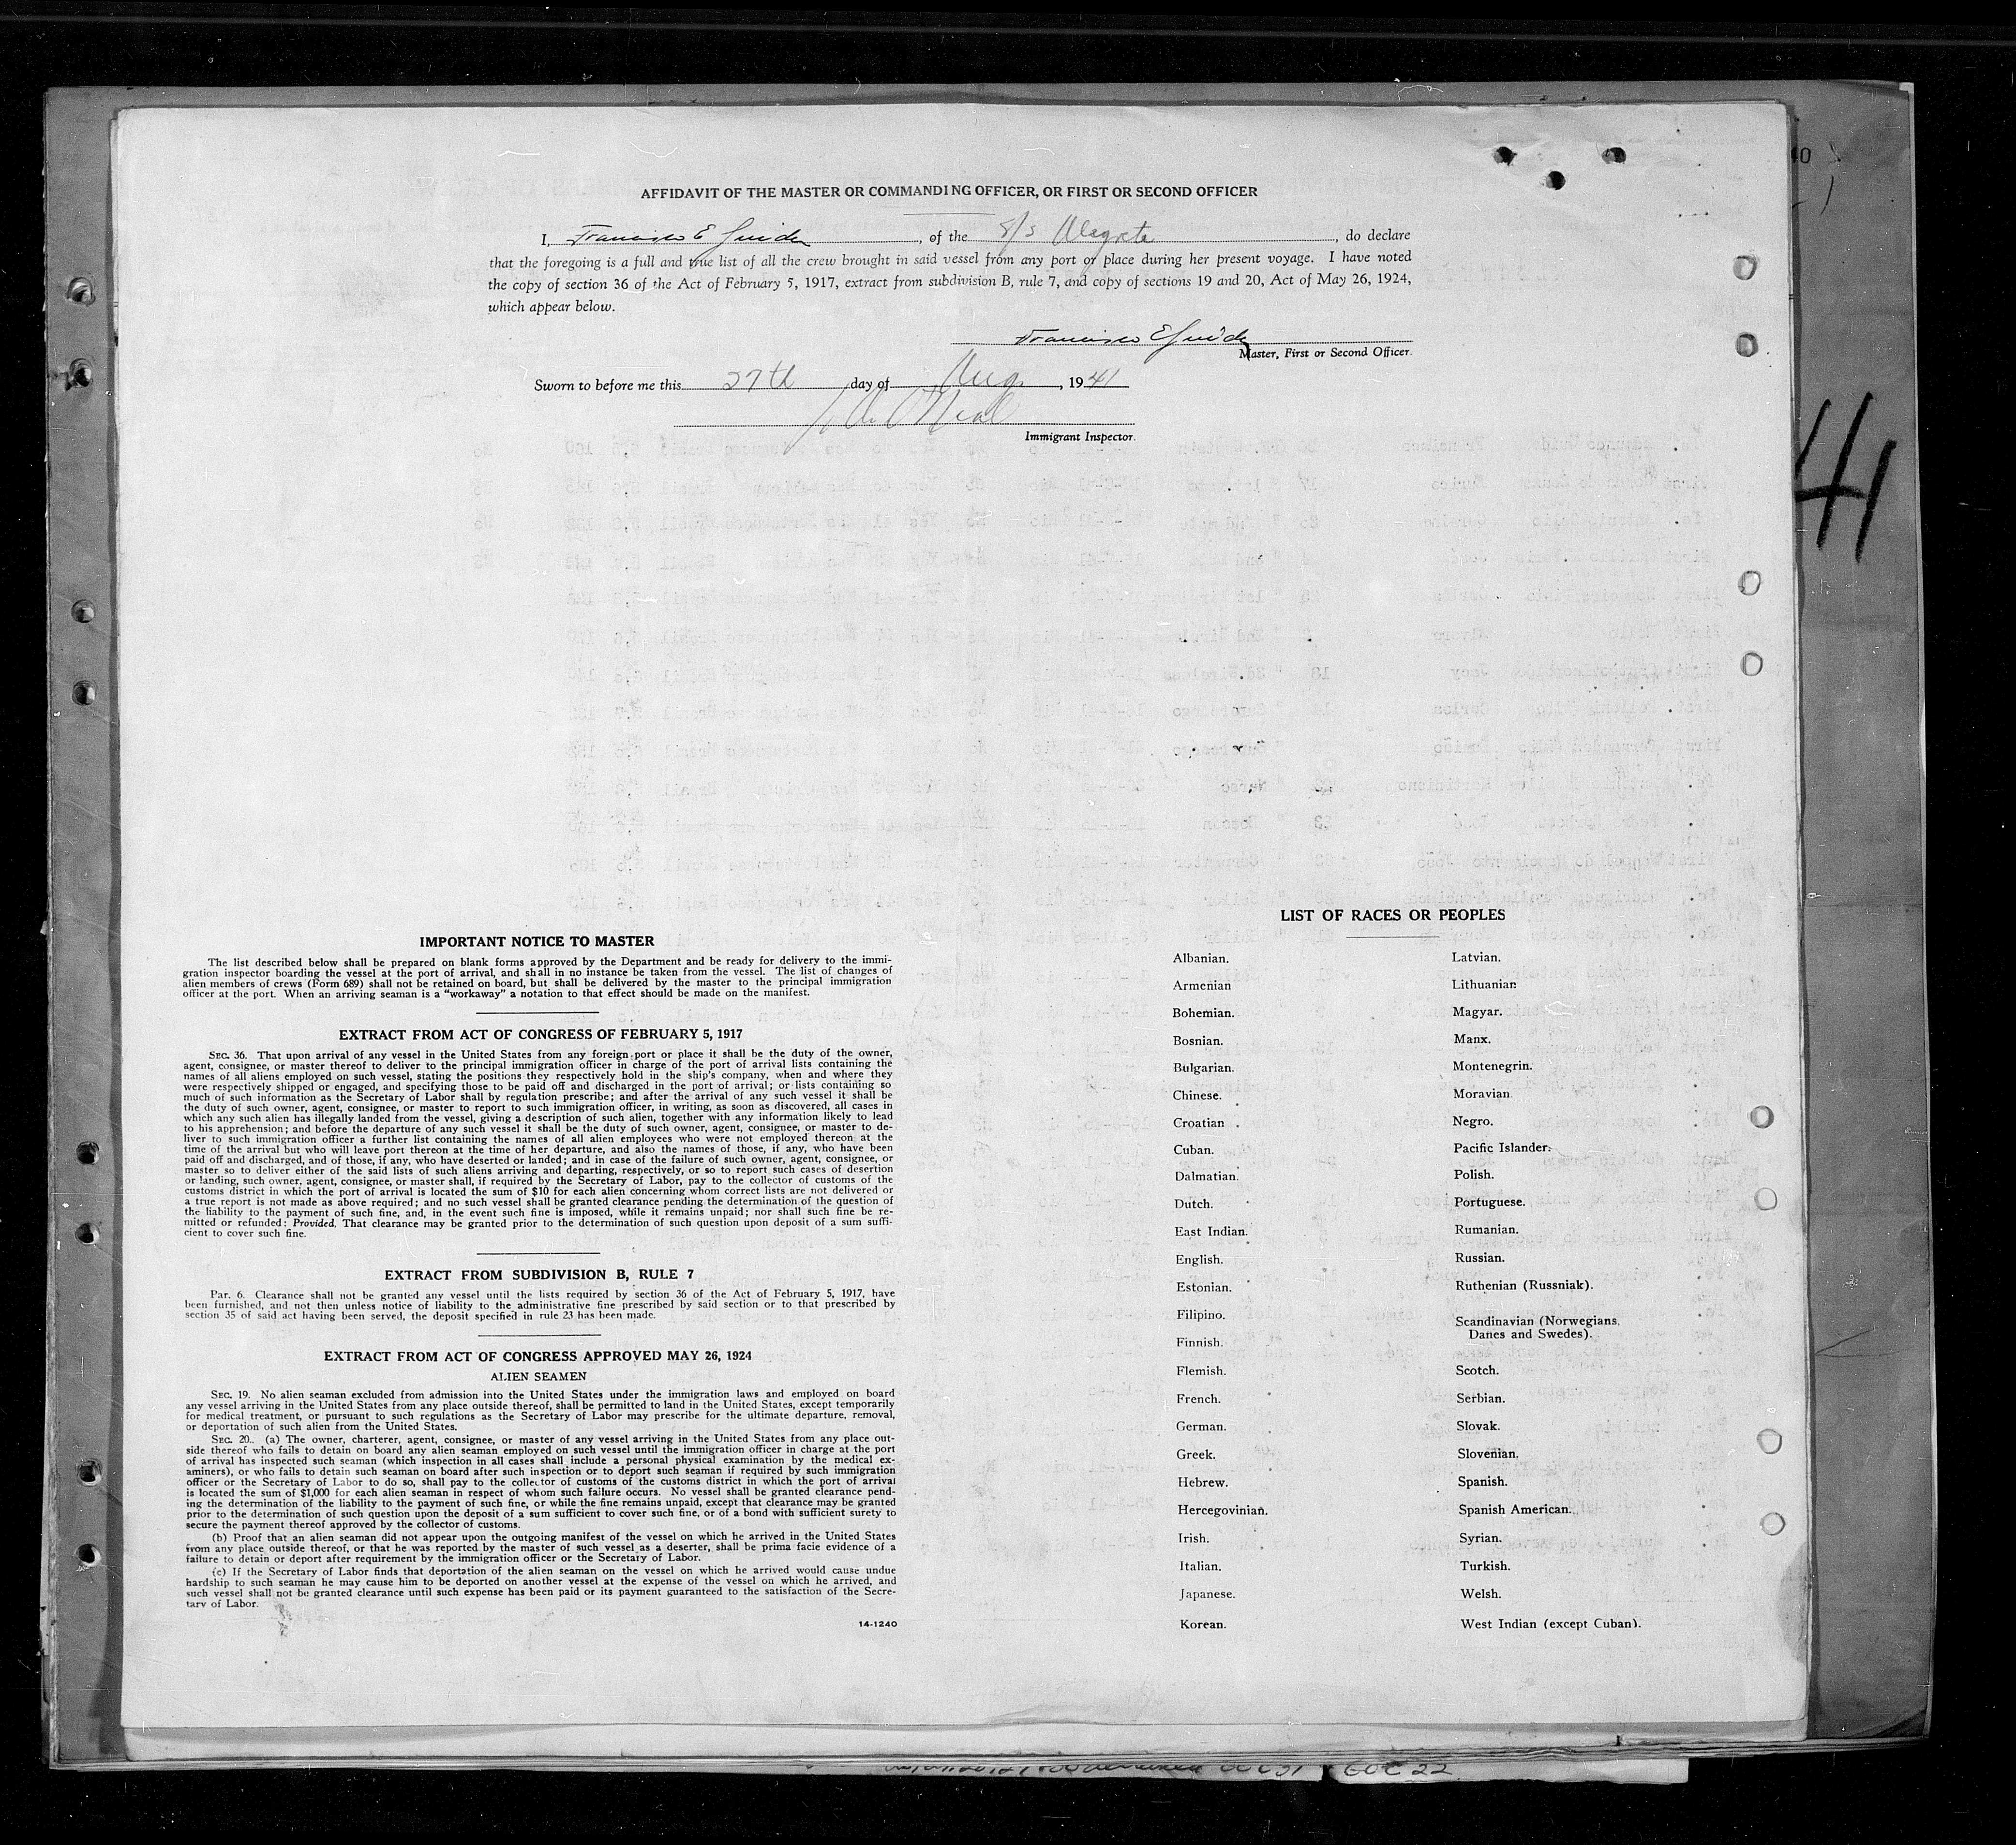 AFFIDAVIT OF THE MASTER OR COMMANDING OFFICER, OR FIRST OR SECOND OFFICER
I, Francisco E Guida, of the S/S Alegrete, do declare
that the foregoing is a full and true list of all the crew brought in said vessel from any port or place during her present voyage. I have noted
the copy of section 36 of the Act of February 5, 1917, extract from subdivision B, rule 7, and copy of sections 19 and 20, Act of May 26, 1924,
which appear below.
Francisco E Guida
Master, First or Second Officer.
Sworn to before me this 27th day of Aug, 1941
O'Neal
Immigrant Inspector.
41
IMPORTANT NOTICE TO MASTER
The list described below shall be prepared on blank forms approved by the Department and be ready for delivery to the immi-
gration inspector boarding the vessel at the port of arrival, and shall in no instance be taken from the vessel. The list of changes of
alien members of crews (Form 689) shall not be retained on board, but shall be delivered by the master to the principal immigration
officer at the port. When an arriving seaman is a "workaway" a notation to that effect should be made on the manifest.
EXTRACT FROM ACT OF CONGRESS OF FEBRUARY 5, 1917
SEC. 36. That upon arrival of any vessel in the United States from any foreign port or place it shall be the duty of the owner,
agent, consignee, or master thereof to deliver to the principal immigration officer in charge of the port of arrival lists containing the
names of all aliens employed on such vessel, stating the positions they respectively hold in the ship's company, when and where they
were respectively shipped or engaged, and specifying those to be paid off and discharged in the port of arrival; or lists containing so
much of such information as the Secretary of Labor shall by regulation prescribe; and after the arrival of any such vessel it shall be
the duty of such owner, agent, consignee, or master to report to such immigration officer, in writing, as soon as discovered, all cases in
which any such alien has illegally landed from the vessel, giving a description of such alien, together with any information likely to lead
to his apprehension; and before the departure of any such vessel it shall be the duty of such owner, agent, consignee, or master to de-
liver to such immigration officer a further list containing the names of all alien employees who were not employed thereon at the
time of the arrival but who will leave port thereon at the time of her departure, and also the names of those, if any, who have been
paid off and discharged, and of those, if any, who have deserted or landed; and in case of the failure of such owner, agent, consignee, or
master so to deliver either of the said lists of such aliens arriving and departing, respectively, or so to report such cases of desertion
or landing, such owner, agent, consignee, or master shall, if required by the Secretary of Labor, pay to the collector of customs of the
customs district in which the port of arrival is located the sum of $10 for each alien concerning whom correct lists are not delivered or
a true report is not made as above required; and no such vessel shall be granted clearance pending the determination of the question of
the liability to the payment of such fine, and, in the event such fine is imposed, while it remains unpaid; nor shall such fine be re-
mitted or refunded: Provided, That clearance may be granted prior to the determination of such question upon deposit of a sum suffi-
cient to cover such fine.
EXTRACT FROM SUBDIVISION B, RULE 7
Par. 6. Clearance shall not be granted any vessel until the lists required by section 36 of the Act of February 5, 1917, have
been furnished, and not then unless notice of liability to the administrative fine prescribed by said section or to that prescribed by
section 35 of said act having been served, the deposit specified in rule 23 has been made.
EXTRACT FROM ACT OF CONGRESS APPROVED MAY 26, 1924
ALIEN SEAMEN
SEC. 19. No alien seaman excluded from admission into the United States under the immigration laws and employed on board
any vessel arriving in the United States from any place outside thereof, shall be permitted to land in the United States, except temporarily
for medical treatment, or pursuant to such regulations as the Secretary of Labor may prescribe for the ultimate departure, removal,
or deportation of such alien from the United States.
SEC. 20. (a) The owner, charterer, agent, consignee, or master of any vessel arriving in the United States from any place out-
side thereof who fails to detain on board any alien seaman employed on such vessel until the immigration officer in charge at the port
of arrival has inspected such seaman (which inspection in all cases shall include a personal physical examination by the medical ex-
aminers), or who fails to detain such seaman on board after such inspection or to deport such seaman if required by such immigration
officer or the Secretary of Labor to do so, shall pay to the collector of customs of the customs district in which the port of arrival
is located the sum of $1,000 for each alien seaman in respect of whom such failure occurs. No vessel shall be granted clearance pend-
ing the determination of the liability to the payment of such fine, or while the fine remains unpaid, except that clearance may be granted
prior to the determination of such question upon the deposit of a sum sufficient to cover such fine, or of a bond with sufficient surety to
secure the payment thereof approved by the collector of customs.
(b) Proof that an alien seaman did not appear upon the outgoing manifest of the vessel on which he arrived in the United States
from any place outside thereof, or that he was reported by the master of such vessel as a deserter, shall be prima facie evidence of a
failure to detain or deport after requirement by the immigration officer or the Secretary of Labor.
(c) If the Secretary of Labor finds that deportation of the alien seaman on the vessel on which he arrived would cause undue
hardship to such seaman he may cause him to be deported on another vessel at the expense of the vessel on which he arrived, and
such vessel shall not be granted clearance until such expense has been paid or its payment guaranteed to the satisfaction of the Secre-
tary of Labor.
14-1240
LIST OF RACES OR PEOPLES
Albanian.
Armenian
Bohemian.
Bosnian.
Bulgarian.
Chinese.
Croatian.
Cuban.
Dalmatian.
Dutch.
East Indian.
English.
Estonian.
Filipino.
Finnish.
Flemish.
French.
German.
Greek.
Hebrew.
Hercegovinian.
Irish.
Italian.
Japanese.
Korean.
Latvian.
Lithuanian
Magyar.
Manx.
Montenegrin.
Moravian
Negro.
Pacific Islander.
Polish.
Portuguese.
Rumanian.
Russian.
Ruthenian (Russniak).
Scandinavian (Norwegians,
Danes and Swedes).
Scotch.
Serbian.
Slovak.
Slovenian.
Spanish.
Spanish American.
Syrian.
Turkish.
Welsh.
West Indian (except Cuban).